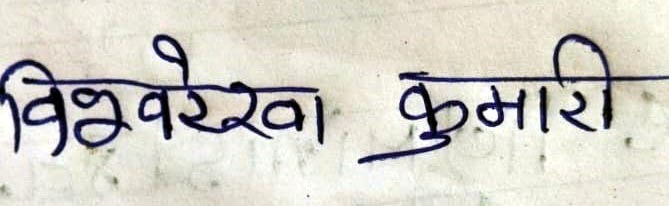 विश्वरेखा कुमारी